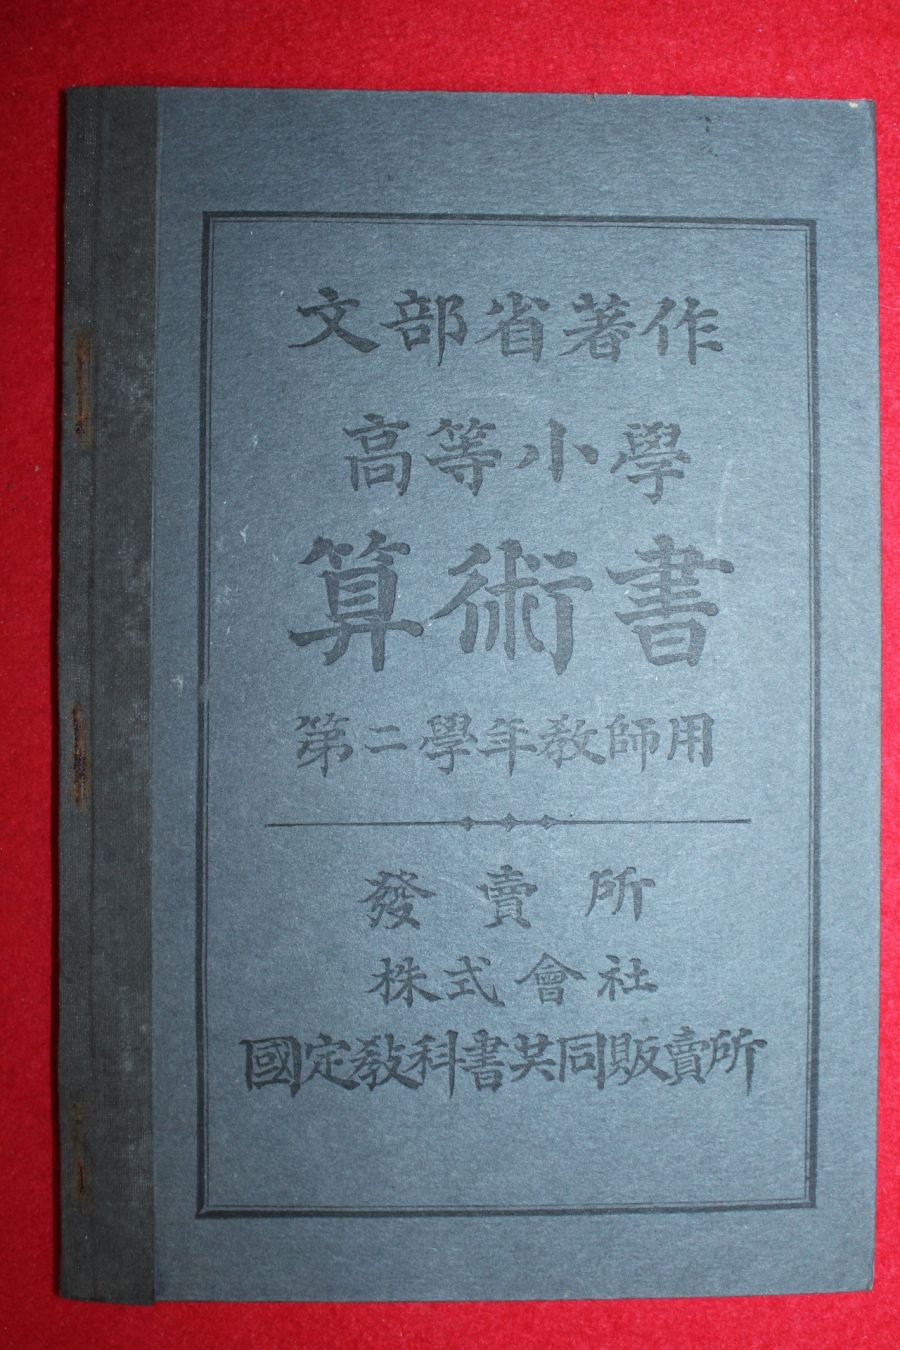 文部省著作
高等小學
算術書
第二學年教師用
發賣所
株式會社
國定教科書共同販賣所